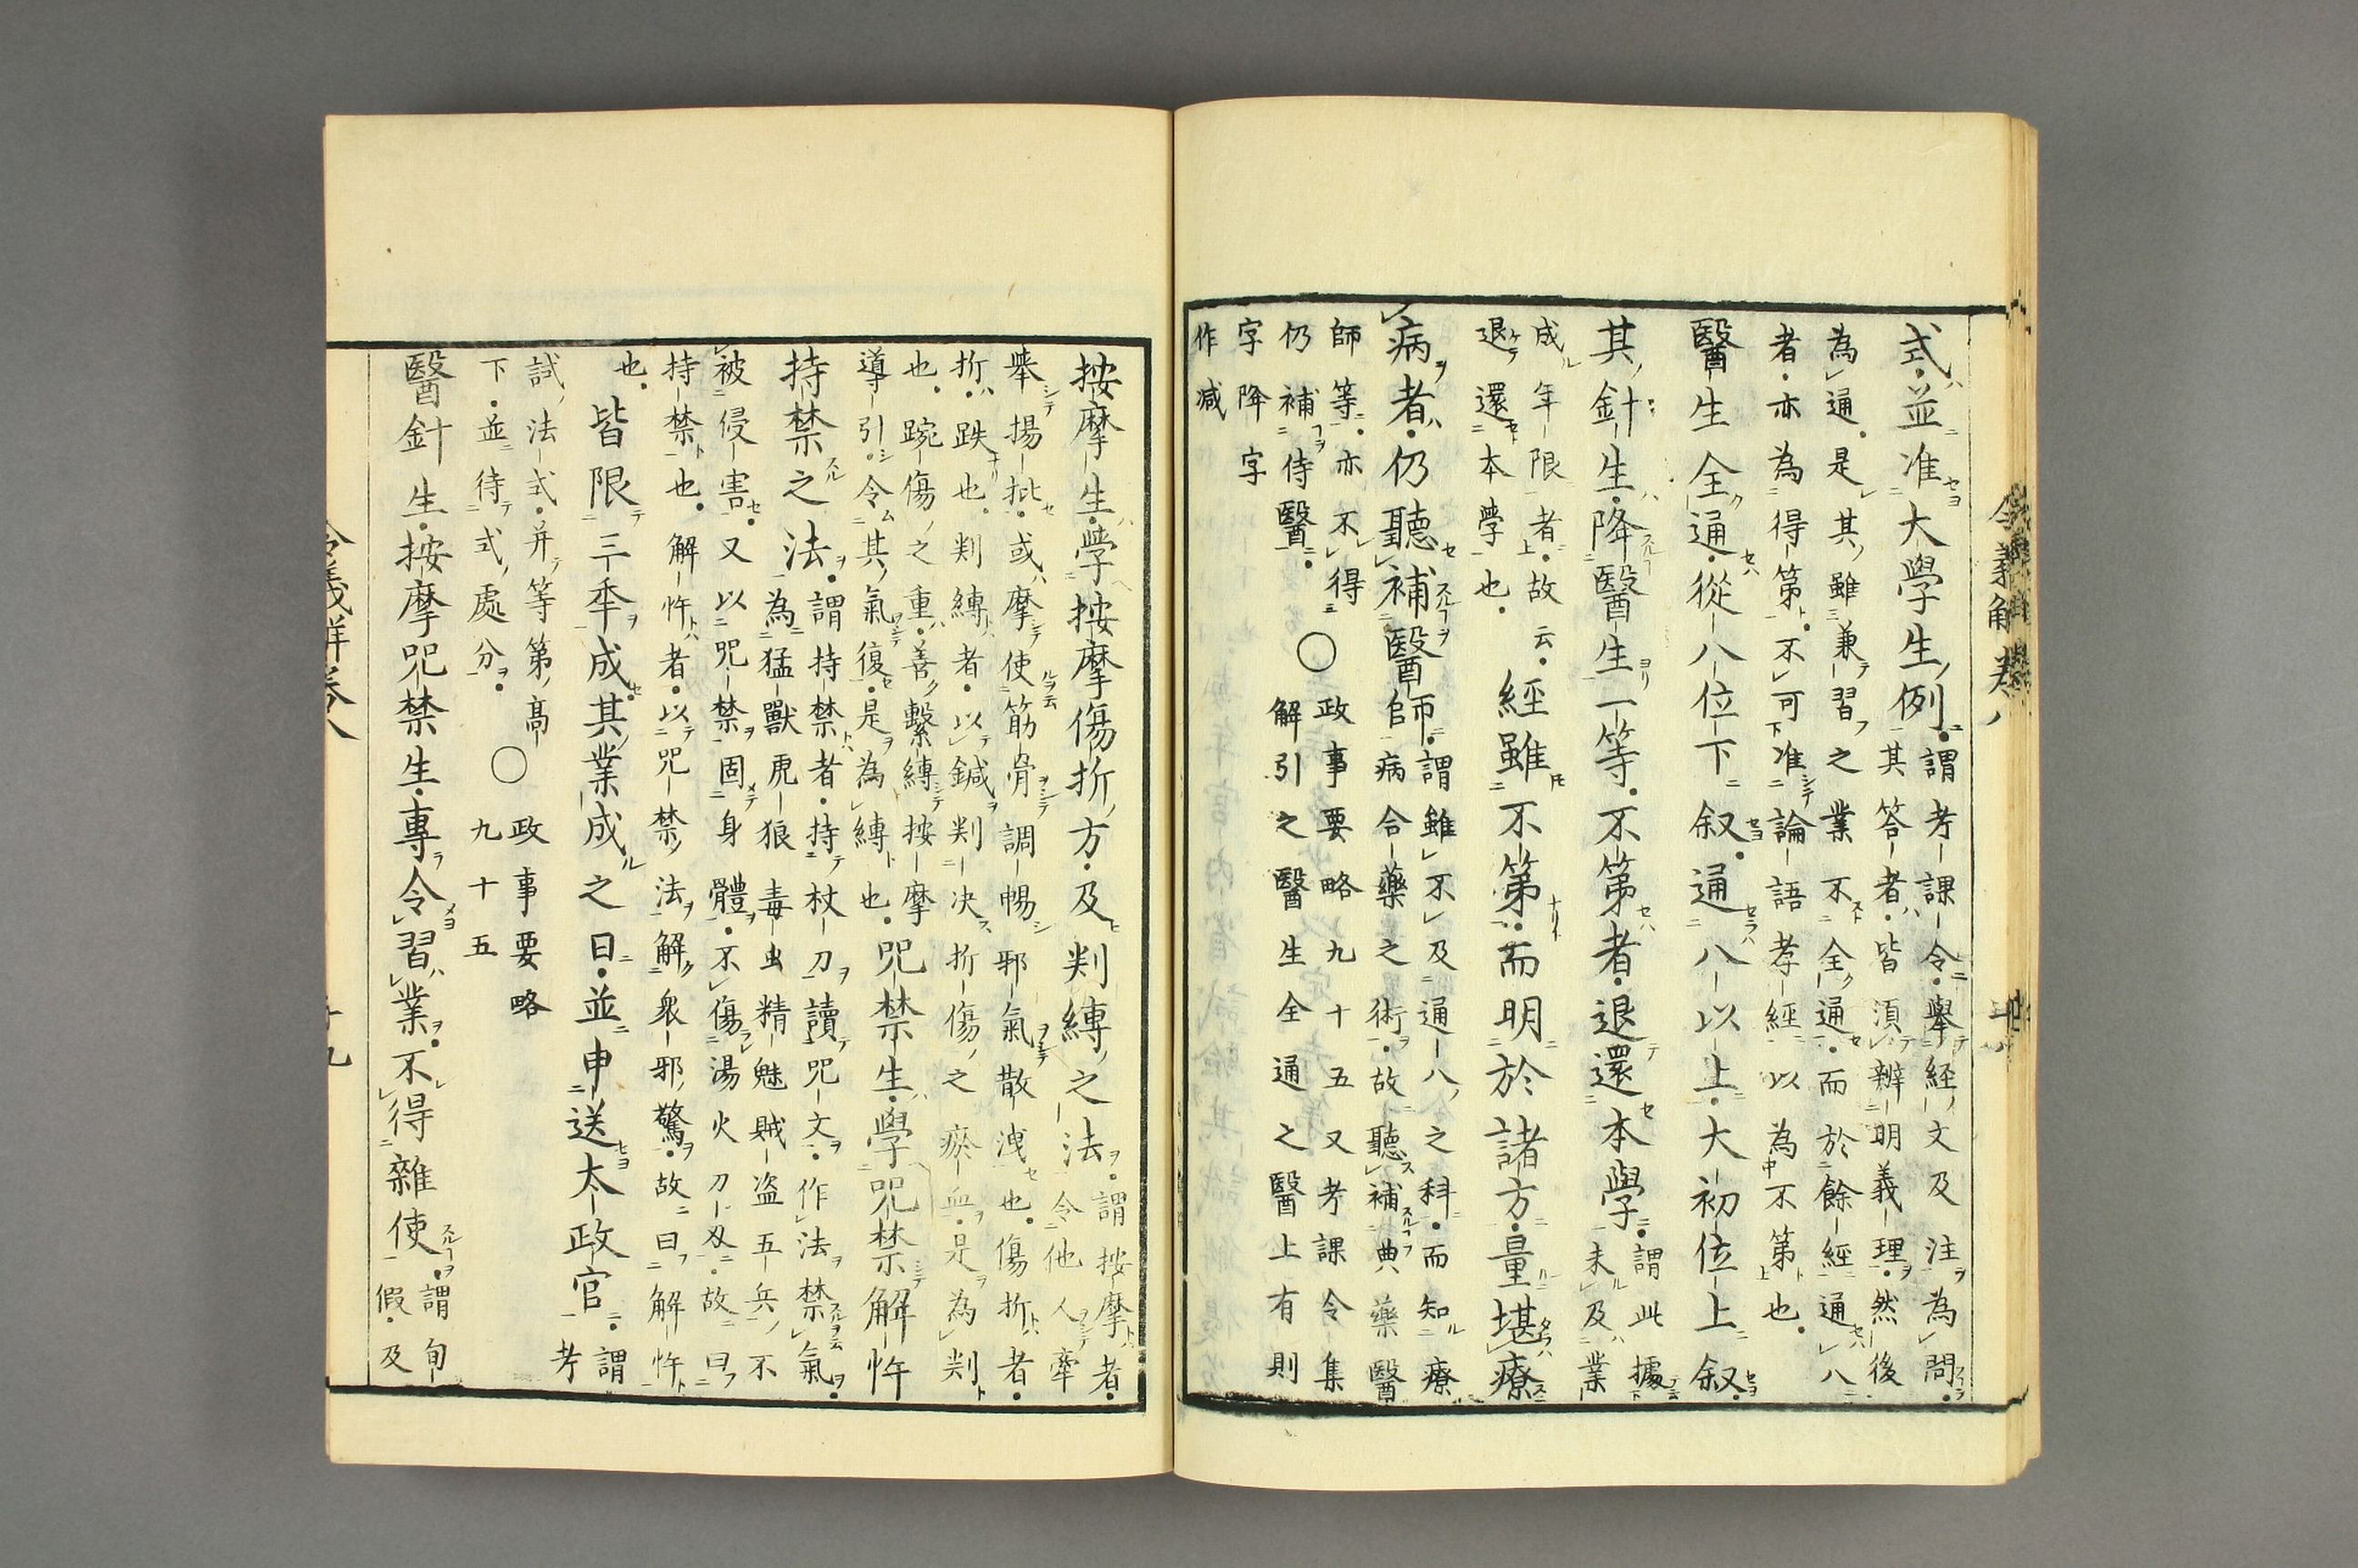 式並准大學生例謂考課令擧経文及注為問
其答者皆須辨明義理然後
為通是其雖兼習之業不全通而於餘經通八
者亦為得第不可准論語孝經以為不第也
醫生全通從八位下叙通八以上大初位上叙
其針生降醫生一等不第者退還本學謂此據
未及業
成年限者故云
退還本學也
經雖不第而明於諸方量堪療
病者仍聽補醫師謂雖不及通八之科而知療
病合藥之術故聽補典藥醫
師等亦不得
仍補侍醫
○
政事要略九十五又考課令集
解引之醫生全通之醫上有則
字降字
作減
令義解卷八
按摩生學按摩傷折方及判縛之法謂按摩者
令他人牽
擧揚批或摩使筋骨調暢邪氣散洩也傷折者
折跌也判縛者以鍼判決折傷之瘀血是為判
也踠傷之重善繫縛按摩
導引令其氣復是為縛也
咒禁生學咒禁解忤
持禁之法謂持禁者持杖刀讀咒文作法禁氣
為猛獸虎狼毒虫精魅賊盗五兵不
被侵害又以咒禁固身體不傷湯火刀刄故曰
持禁也解忤者以咒禁法解衆邪驚故曰解忤
也
皆限三年成其業成之日並申送太政官謂
考
試法式并等第高
下並待式處分
○
政事要略
九十五
醫針生按摩咒禁生專令習業不得雜使謂旬
假及